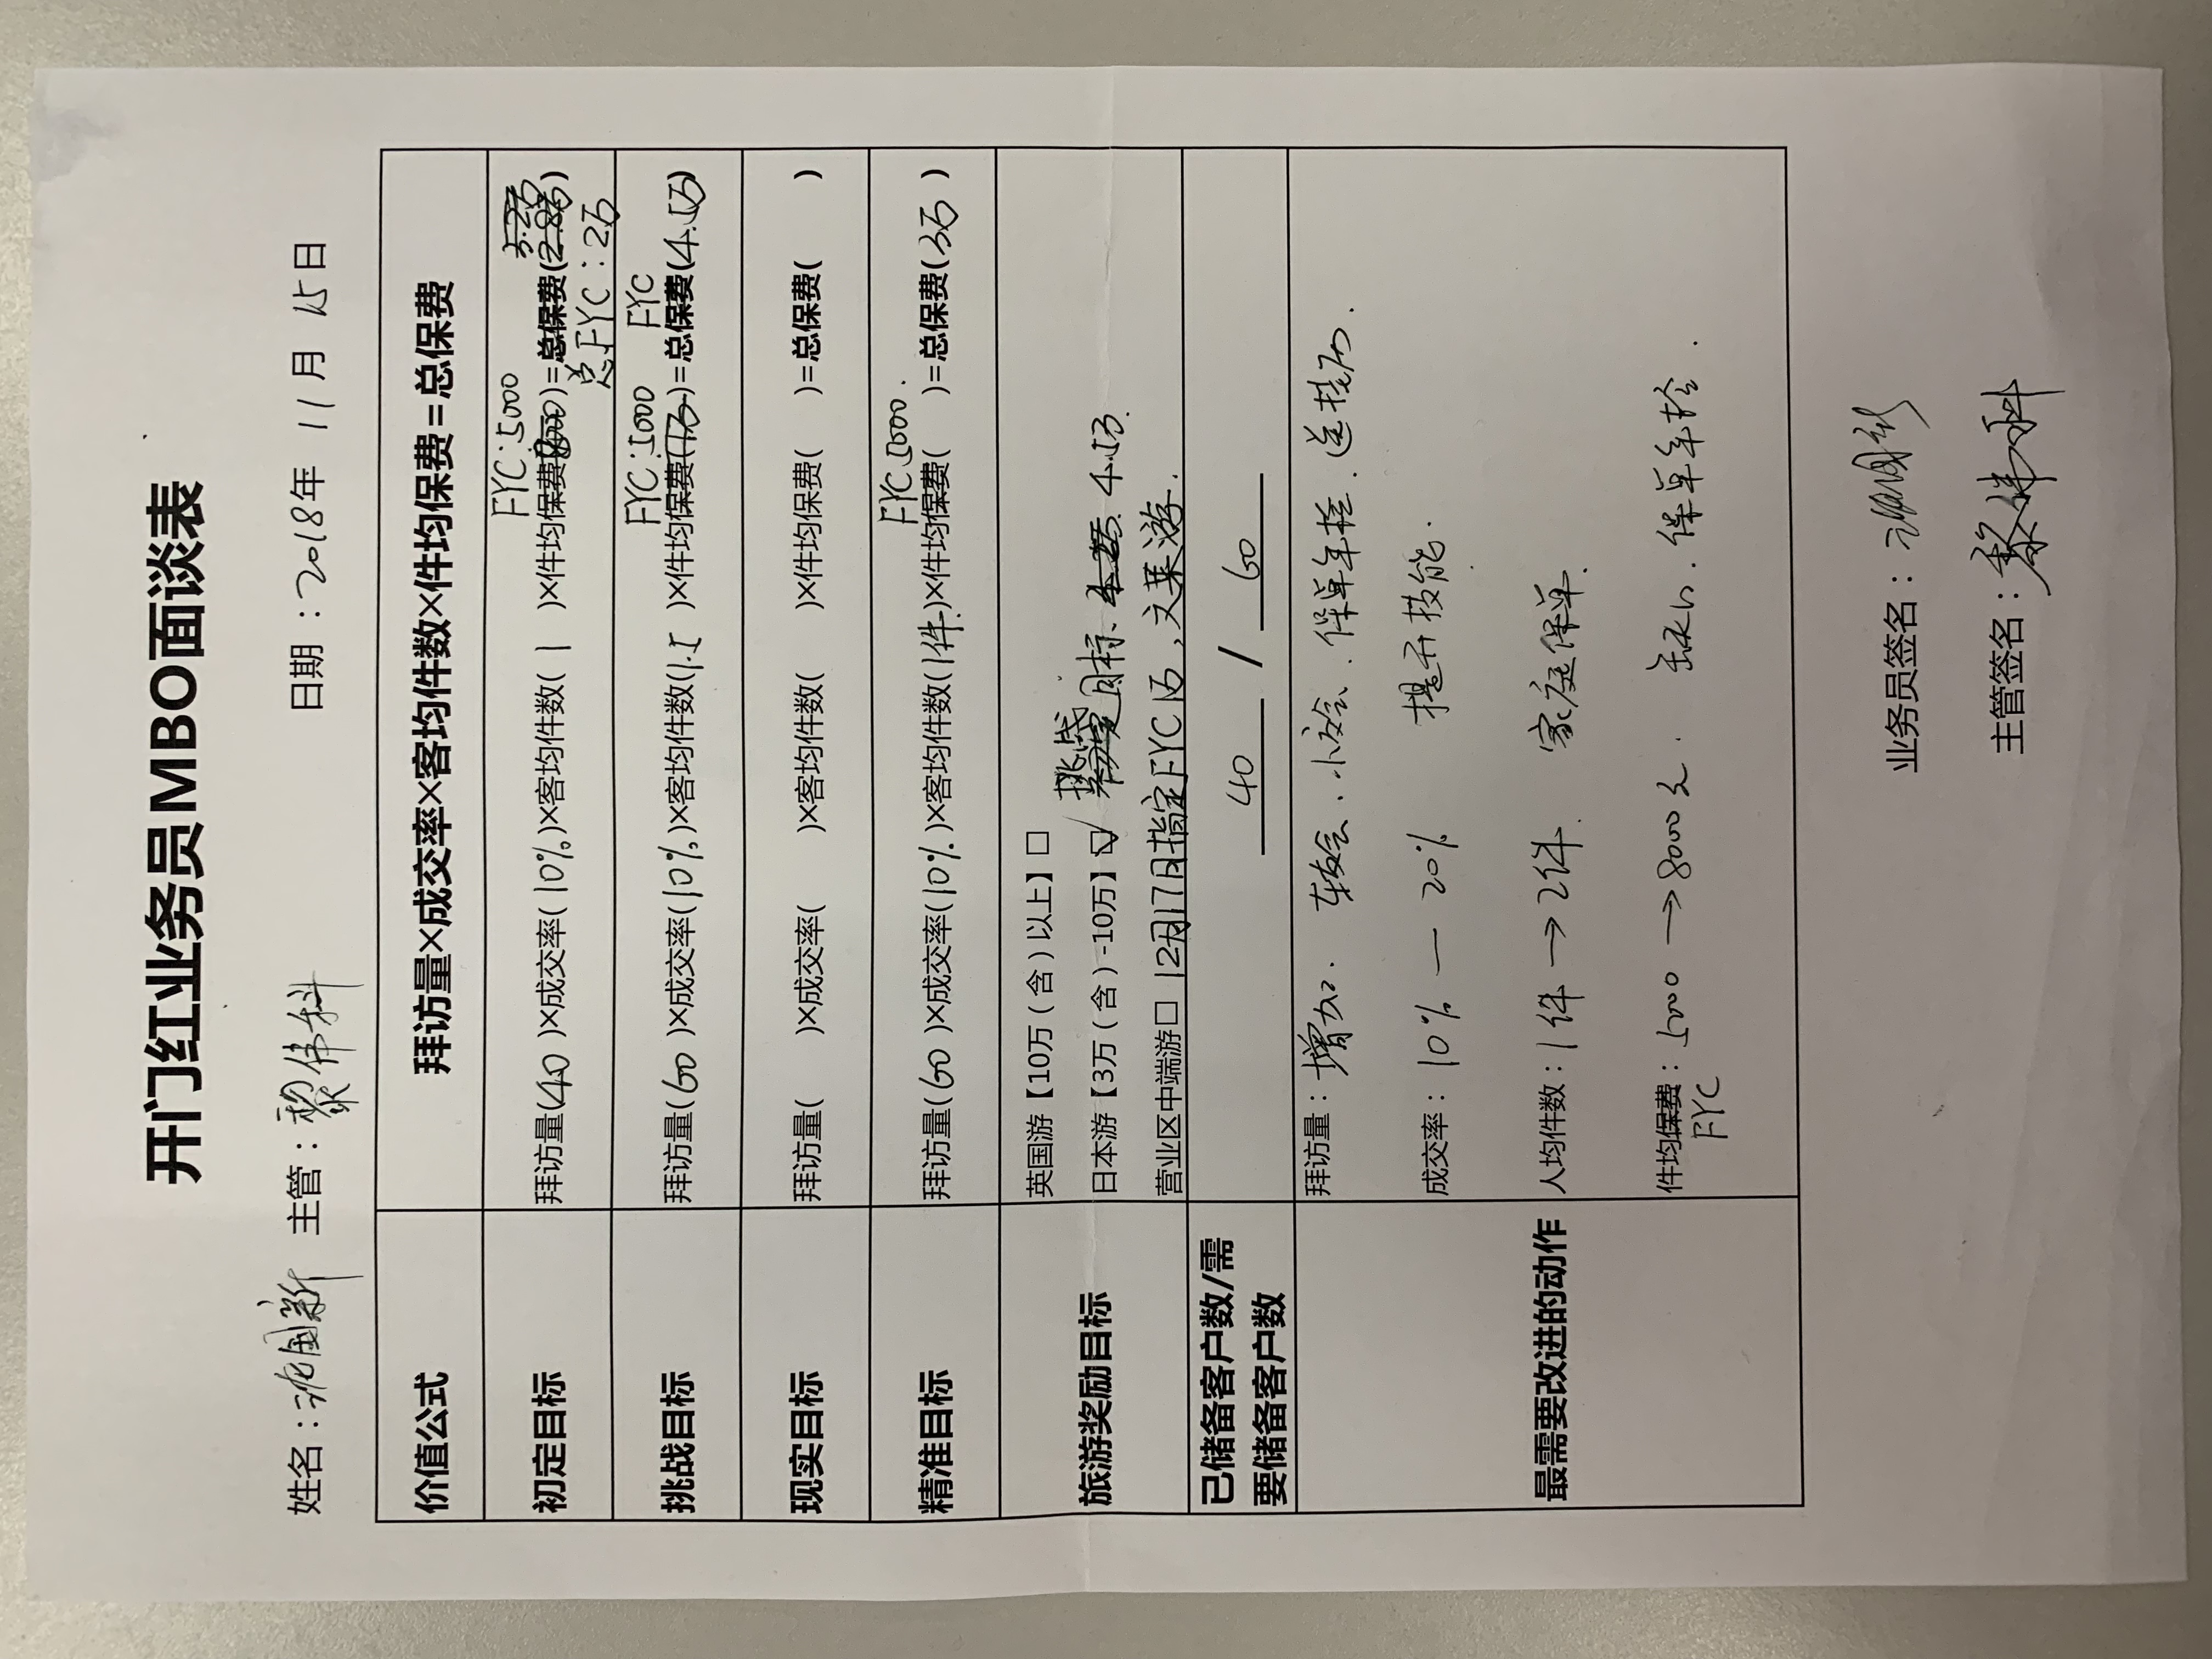 开门红业务员MBO面谈表
姓名： 主管：黎伟科 日期：2018年11月15日
价值公式 拜访量×成交率×客均件数×件均保费=总保费
FYC:5000 3.2万
初定目标 拜访量(40)×成交率(10%)×客均件数(1)×件均保费(8000)=总保费(2.8万)
总FYC:2万
FYC:5000 FYC
挑战目标 拜访量(60)×成交率(10%)×客均件数(1.5)×件均保费(1万)=总保费(4.5万)
现实目标 拜访量( )×成交率( )×客均件数( )×件均保费( )=总保费( )
FYC5000.
精准目标 拜访量(60)×成交率(10%)×客均件数(1件)×件均保费( )=总保费(3万)
旅游奖励目标
英国游【10万（含）以上】□
挑战
日本游【3万（含）-10万】☑ 目标、4.5万.
营业区中端游□ 12月17日指定FYC1万,文莱游.
已储备客户数/需要储备客户数 40 / 60
最需要改进的动作
拜访量：增加. 保单年检.送挂历.
成交率：10%—20% 提升技能.
人均件数：1件→2件. 家庭保单.
件均保费：5000→8000元. 保单年检.
FYC
业务员签名：
主管签名：黎伟科